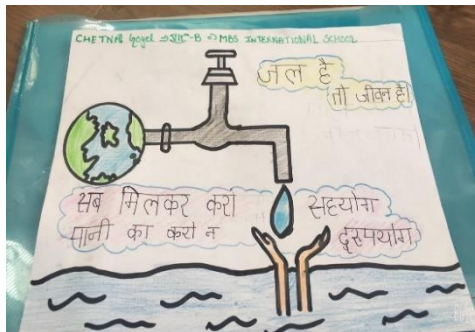 CHETNA Goyel → VIII-B → MBS INTERNATIONAL SCHOOL
जल है
तो जीवन है।
सब मिलकर करो सहयोग
पानी का करो न दुरुपयोग